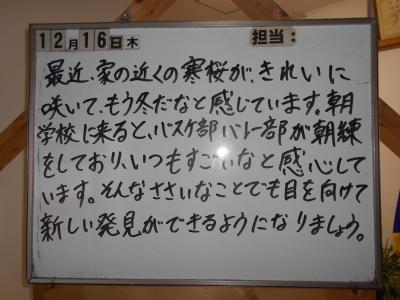 12月16日木 担当:
最近、家の近くの寒桜が、きれいに
咲いて、もう冬だなと感じています。朝
学校に来ると、バスケ部バレー部が朝練
をしており、いつもすごいなと感心して
います。そんなささいなことでも目を向けて
新しい発見ができるようになりましょう。